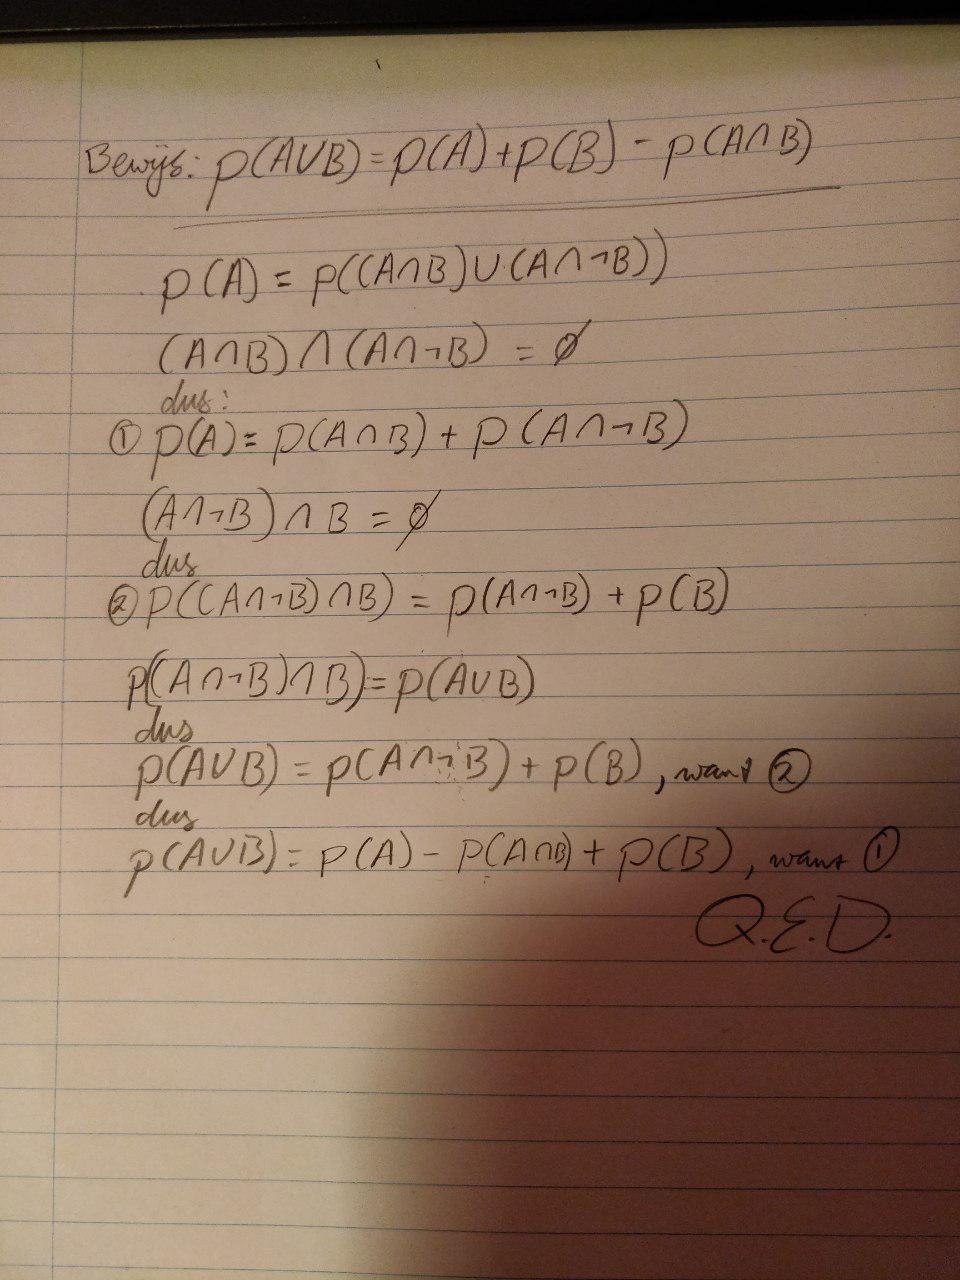 Bewijs: p(A∪B) = p(A) + p(B) - p(A∩B)
p(A) = p((A∩B)∪(A∩¬B))
(A∩B)∩(A∩¬B) = ∅
dus:
① p(A) = p(A∩B) + p(A∩¬B)
(A∩¬B)∩B = ∅
dus
② p((A∩¬B)∩B) = p(A∩¬B) + p(B)
p((A∩¬B)∩B) = p(A∪B)
dus
p(A∪B) = p(A∩¬B) + p(B), want ②
dus
p(A∪B) = p(A) - p(A∩B) + p(B), want ①
Q.E.D.